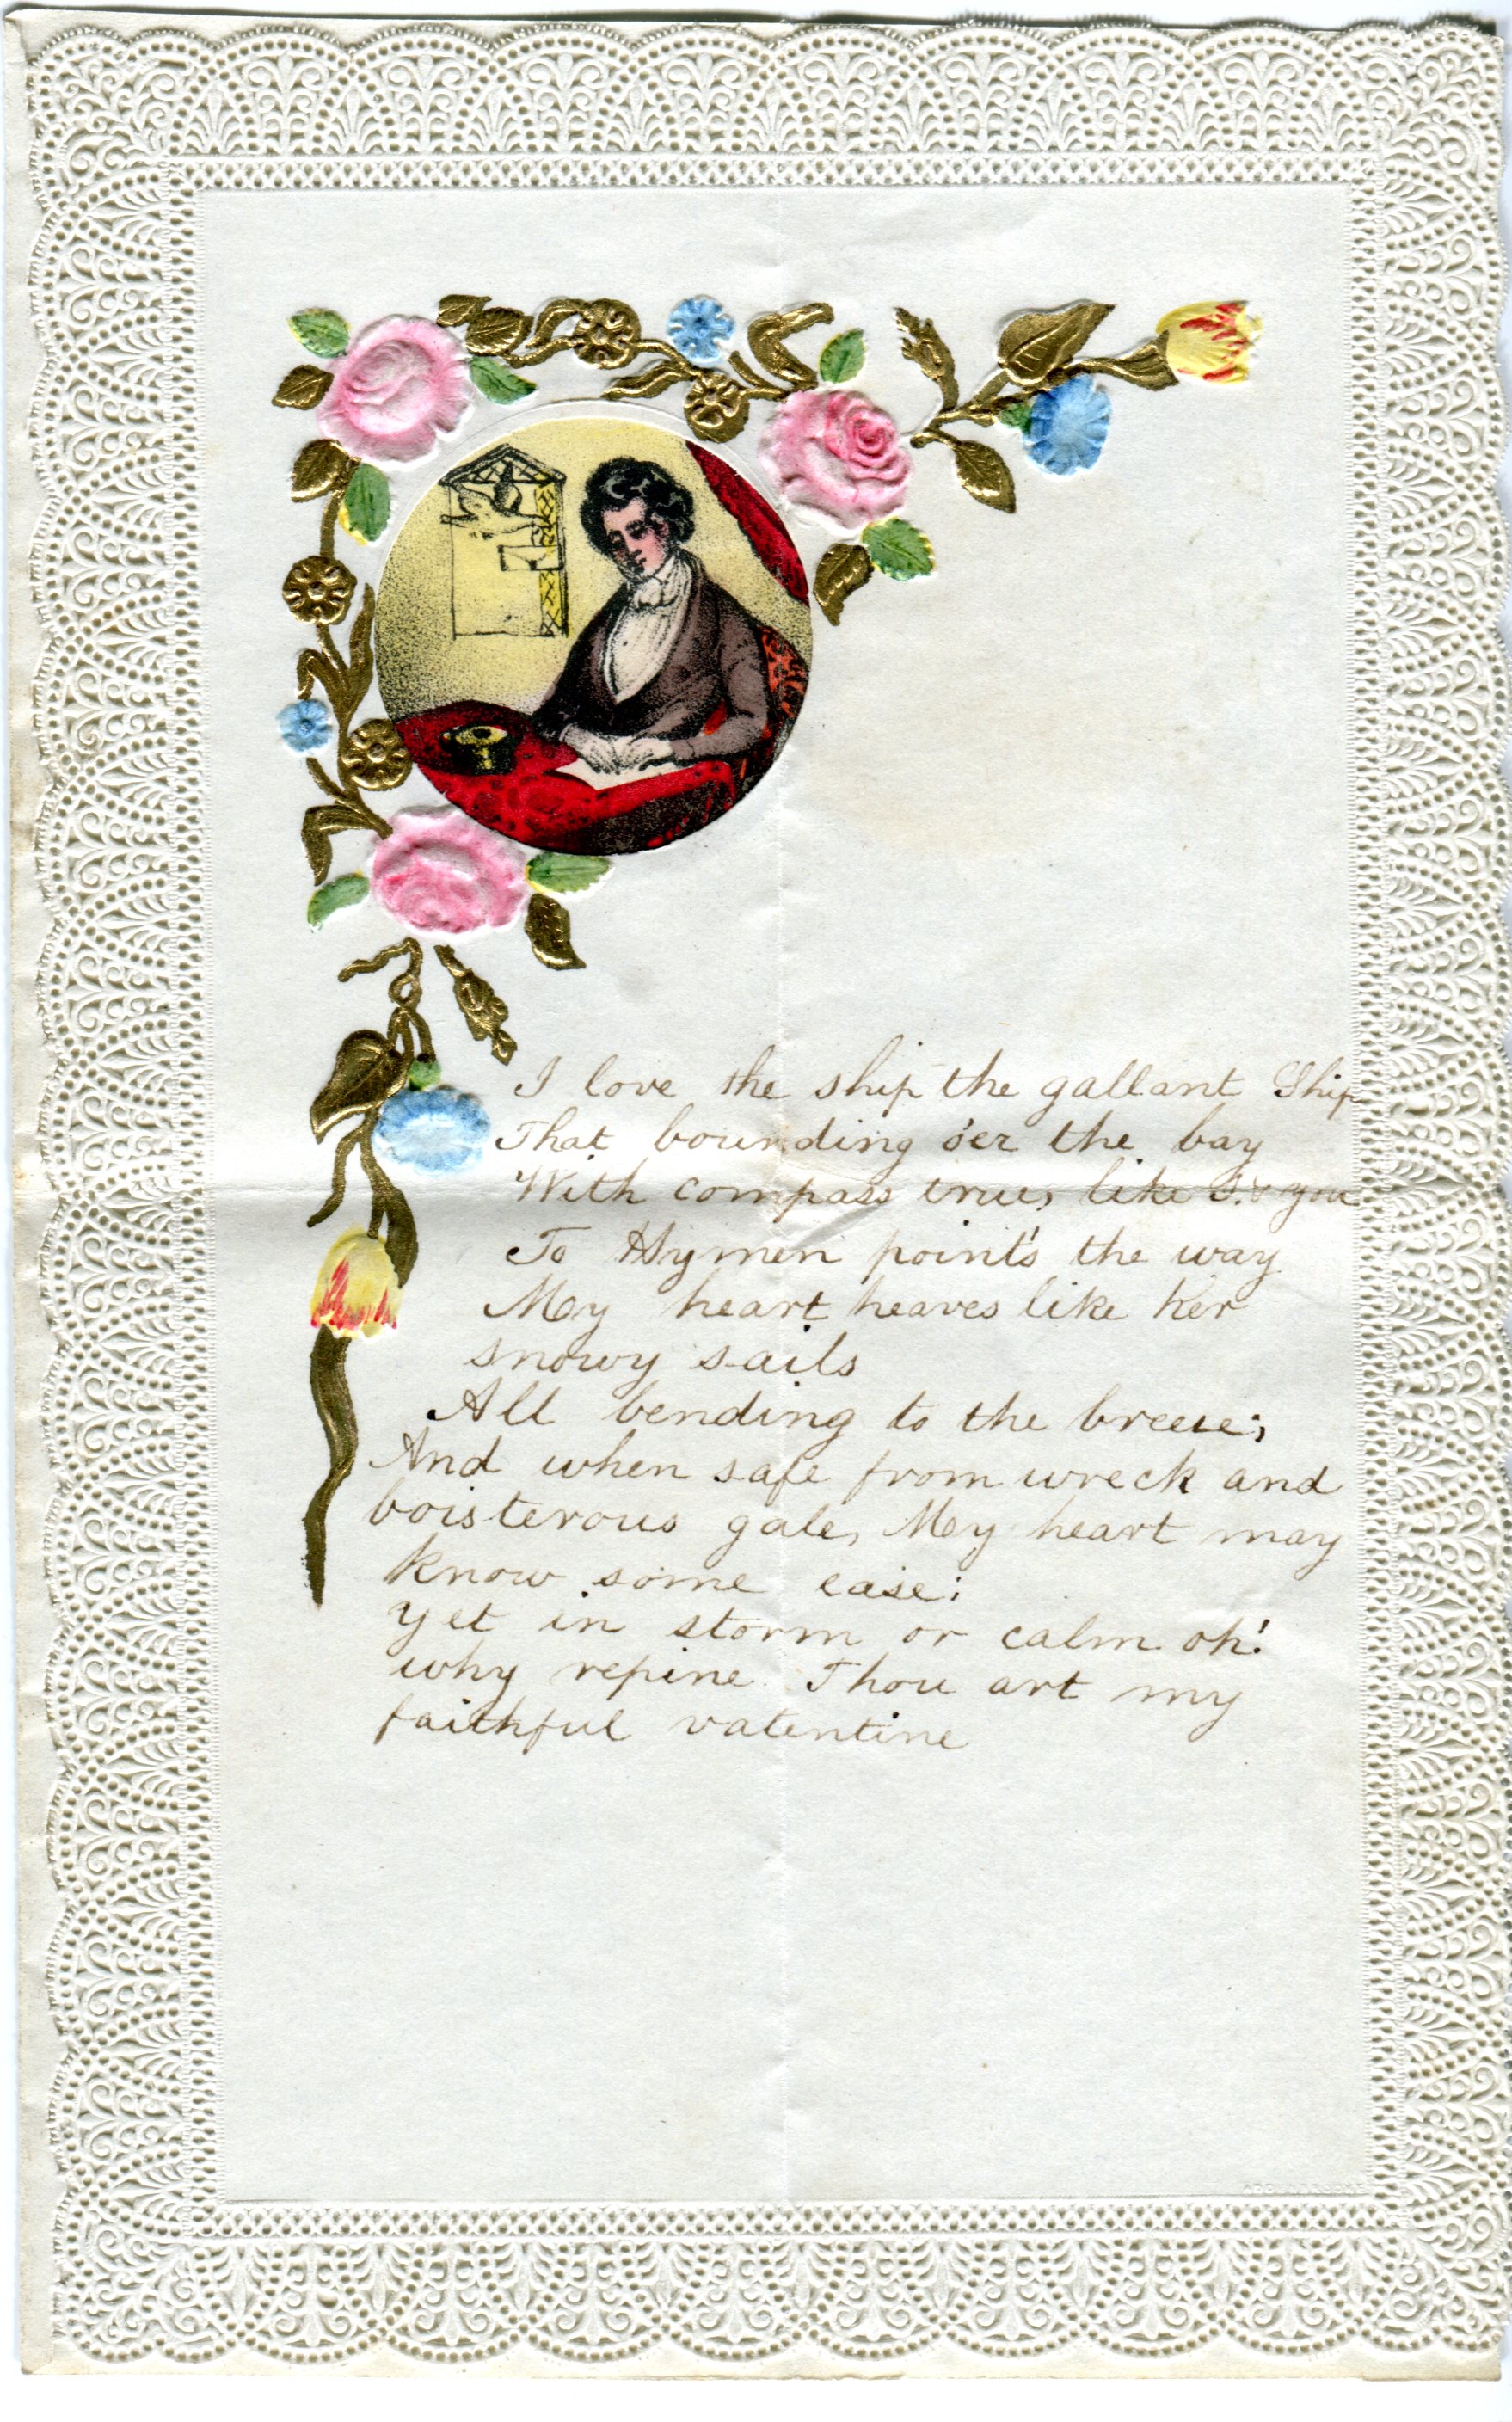 I love the ship the gallant Ship
That bounding o'er the bay
With compass true, like I. & you
To Hymen point's the way
My heart heaves like her
snowy sails
All bending to the breeze;
And when safe from wreck and
boisterous gale, My heart may
know some ease;
yet in storm or calm oh!
why repine Thou art my
faithful valentine